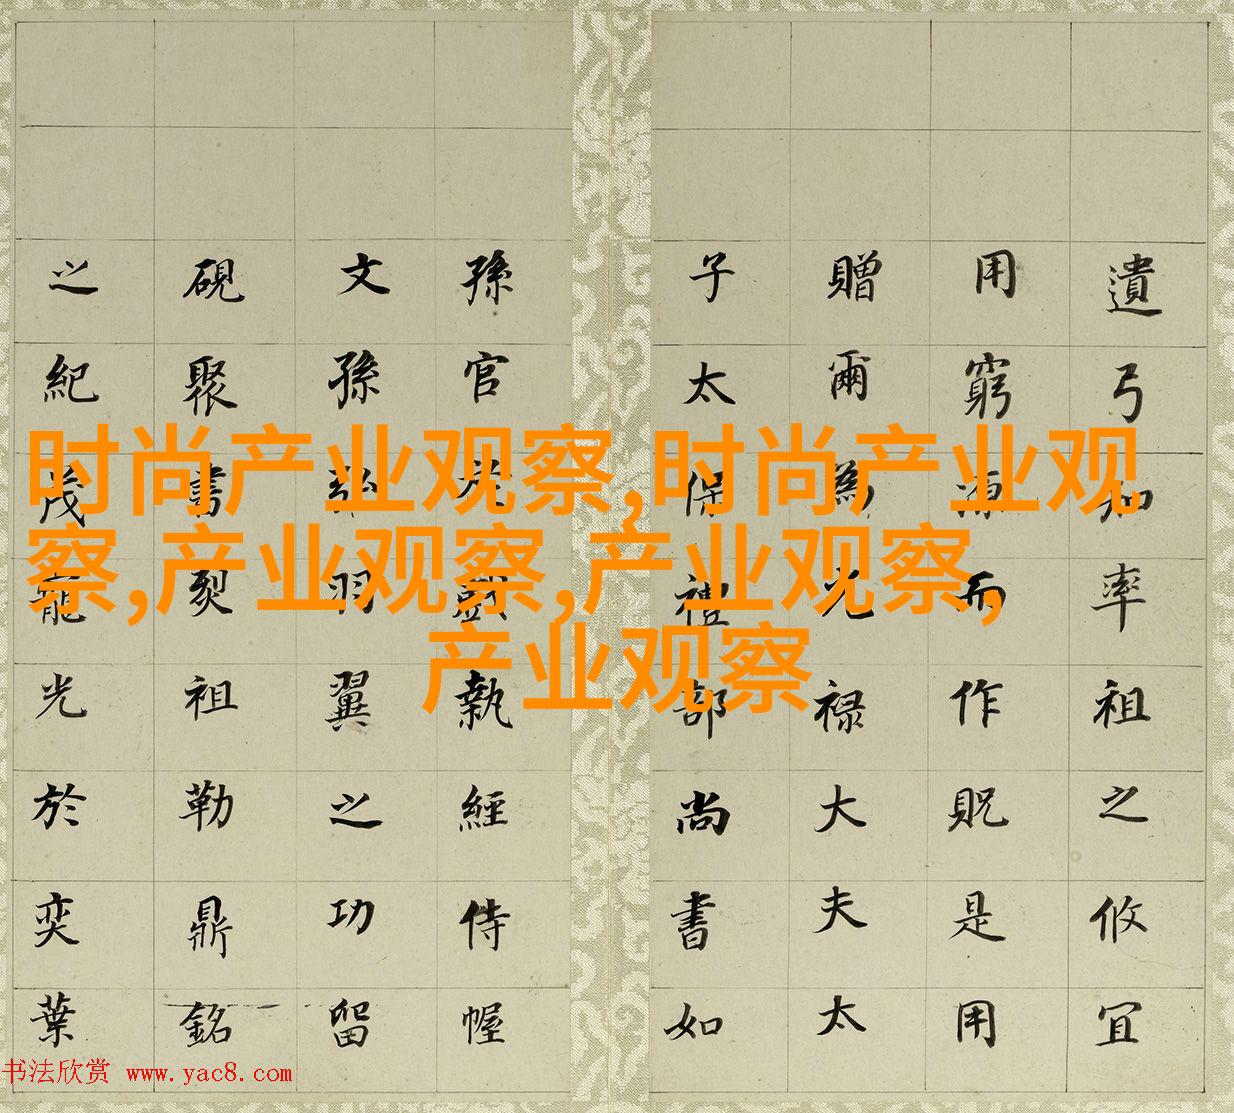 遺弓知率祖之攸宜
用窮源而作貺是用
贈爾為光祿大夫太
子太保禮部尚書如
孫官於戲執經侍幄
文孫弘羽翼之功留
硯聚書烈祖勒鼎銘
之紀茂寵光於奕葉
时尚产业观察,时尚产业观
察,产业观察,产业观察,
产业观察
书法欣赏 www.yac8.com